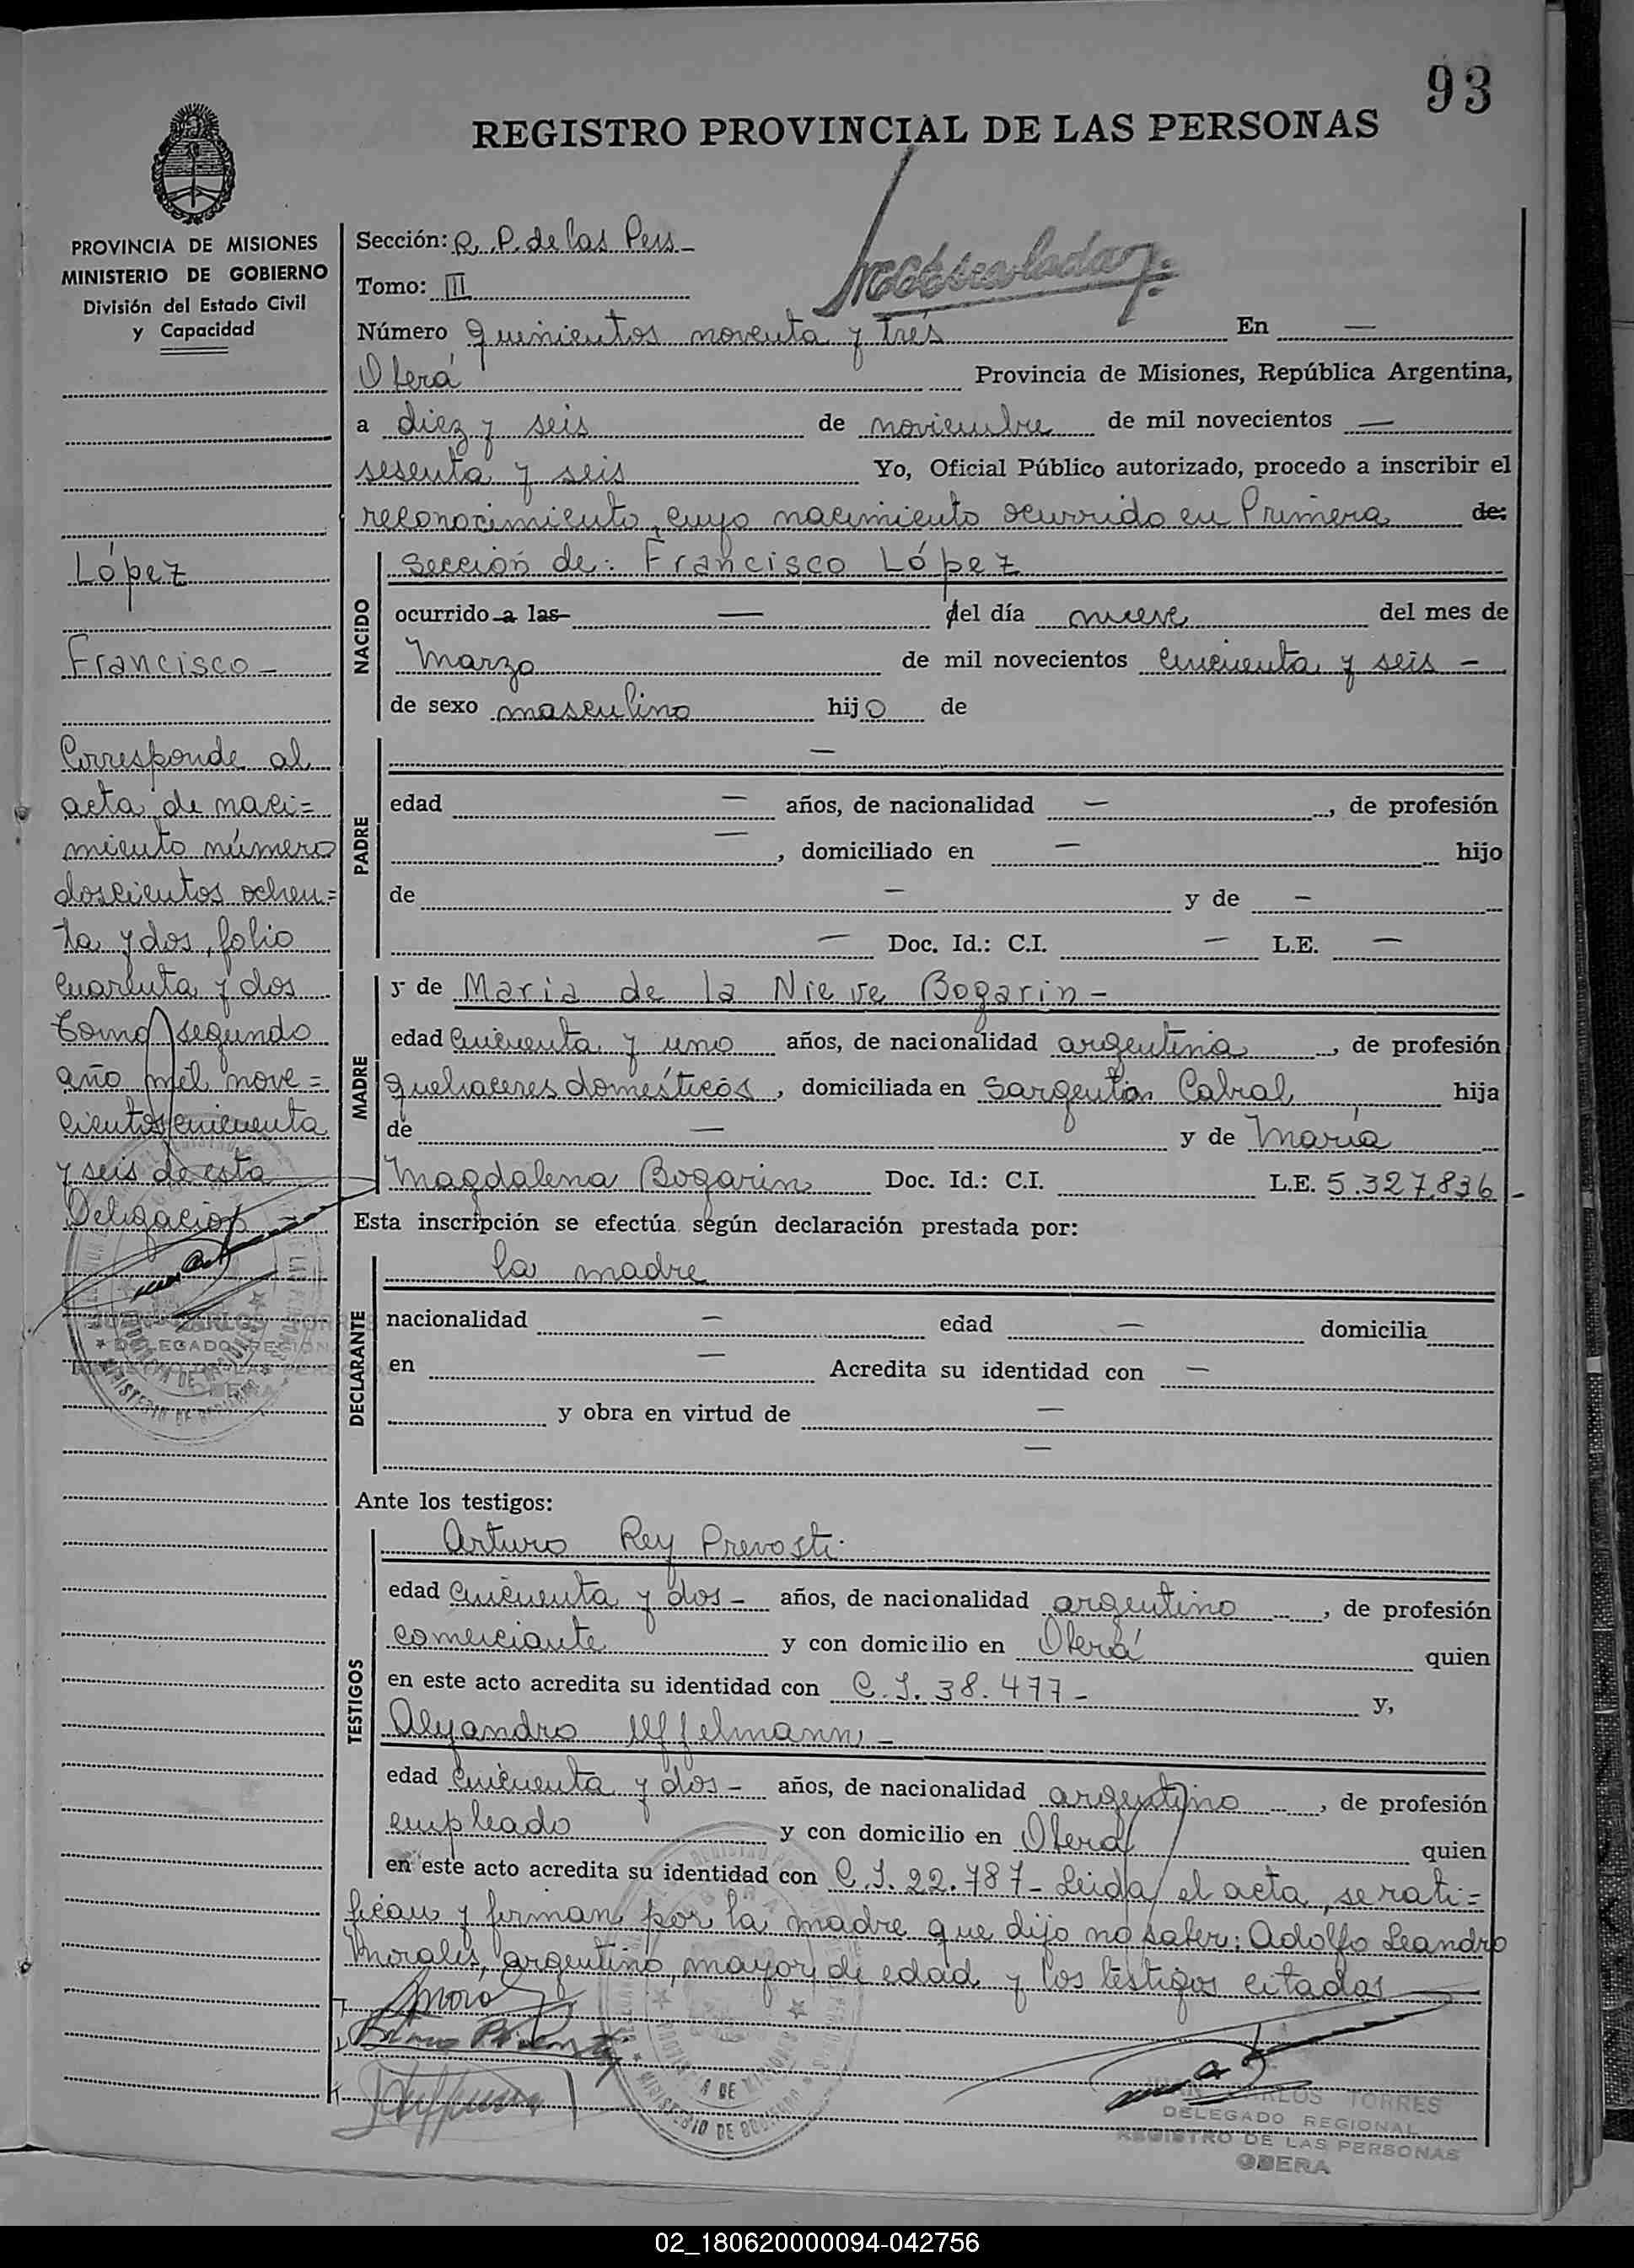 93
REGISTRO PROVINCIAL DE LAS PERSONAS
PROVINCIA DE MISIONES
MINISTERIO DE GOBIERNO
División del Estado Civil
y Capacidad
López
Francisco -
Corresponde al
acta de naci=
miento número
doscientos ochen=
ta y dos, folio
cuarenta y dos
Tomo segundo
año mil nove=
cientos cincuenta
y seis de esta
Delegación -
JUAN CARLOS TORRES
DELEGADO REGIONAL
Sección: R. P. de las Pers -
Tomo: III
Número quinientos noventa y trés En —
Oberá Provincia de Misiones, República Argentina,
a diez y seis de noviembre de mil novecientos —
sesenta y seis Yo, Oficial Público autorizado, procedo a inscribir el
reconocimiento, cuyo nacimiento ocurrido en Primera de:
Sección de: Francisco López
NACIDO
ocurrido a las — del día nueve del mes de
Marzo de mil novecientos cincuenta y seis -
de sexo masculino hijo de
—
PADRE
edad — años, de nacionalidad — , de profesión
— , domiciliado en — hijo
de — y de —
— Doc. Id.: C.I. — L.E. —
MADRE
y de Maria de la Nieve Bogarin -
edad cincuenta y uno años, de nacionalidad argentina , de profesión
quehaceres domésticos , domiciliada en Sargento Cabral hija
de — y de María
Magdalena Bogarin Doc. Id.: C.I. L.E. 5.327.836 -
Esta inscripción se efectúa según declaración prestada por:
DECLARANTE
la madre
nacionalidad — edad — domicilia
en — Acredita su identidad con —
y obra en virtud de —
—
Ante los testigos:
TESTIGOS
Arturo Rey Prevosti
edad cincuenta y dos - años, de nacionalidad argentino , de profesión
comerciante y con domicilio en Oberá quien
en este acto acredita su identidad con C.I. 38.477 - y,
Alejandro Uffelmann -
edad cincuenta y dos - años, de nacionalidad argentino , de profesión
empleado y con domicilio en Oberá quien
en este acto acredita su identidad con C.I. 22.787 - Leida el acta, se rati=
fican y firman por la madre que dijo no saber: Adolfo Leandro
Morales, argentino, mayor de edad y los testigos citados
JUAN CARLOS TORRES
DELEGADO REGIONAL
REGISTRO DE LAS PERSONAS
OBERA
02_180620000094-042756